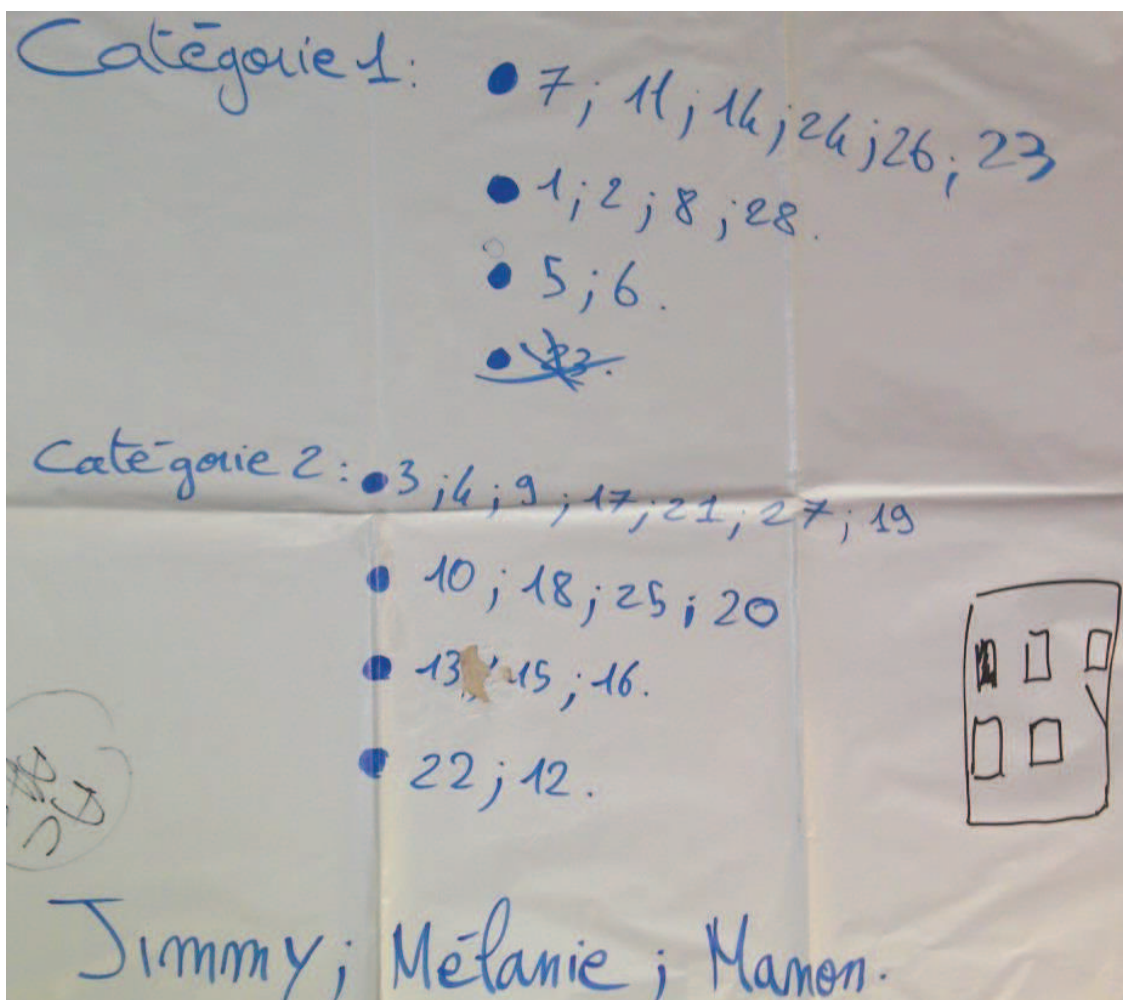 Catégorie 1: • 7; 11; 14; 24; 26; 23
• 1; 2; 8; 28.
• 5; 6.
• 23.
Catégorie 2: • 3; 4; 9; 17; 21; 27; 19
• 10; 18; 25; 20
• 13; 15; 16.
• 22; 12.
Jimmy; Mélanie; Manon.